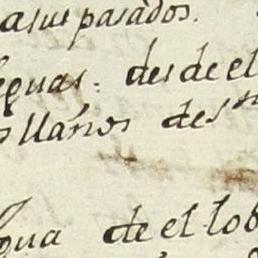 asus pasados.
leguas: desde el
os llanos de sn
gua de el lob